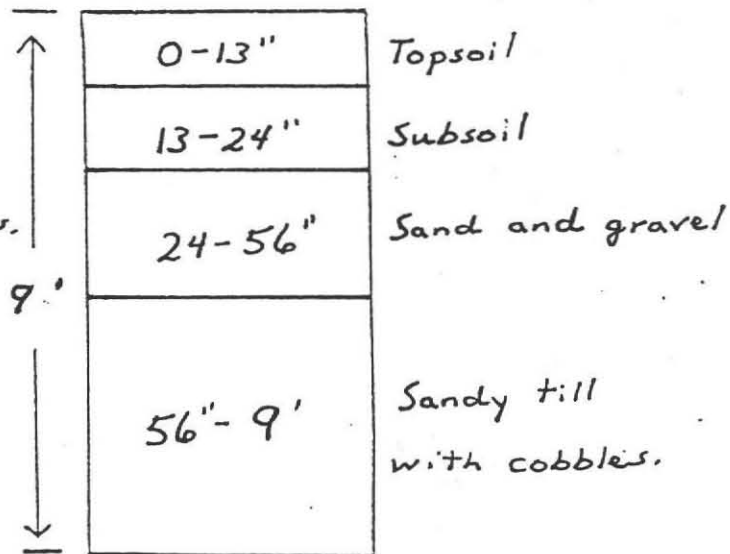 0-13" Topsoil
13-24" Subsoil
24-56" Sand and gravel
9'
56"- 9' Sandy till
with cobbles.